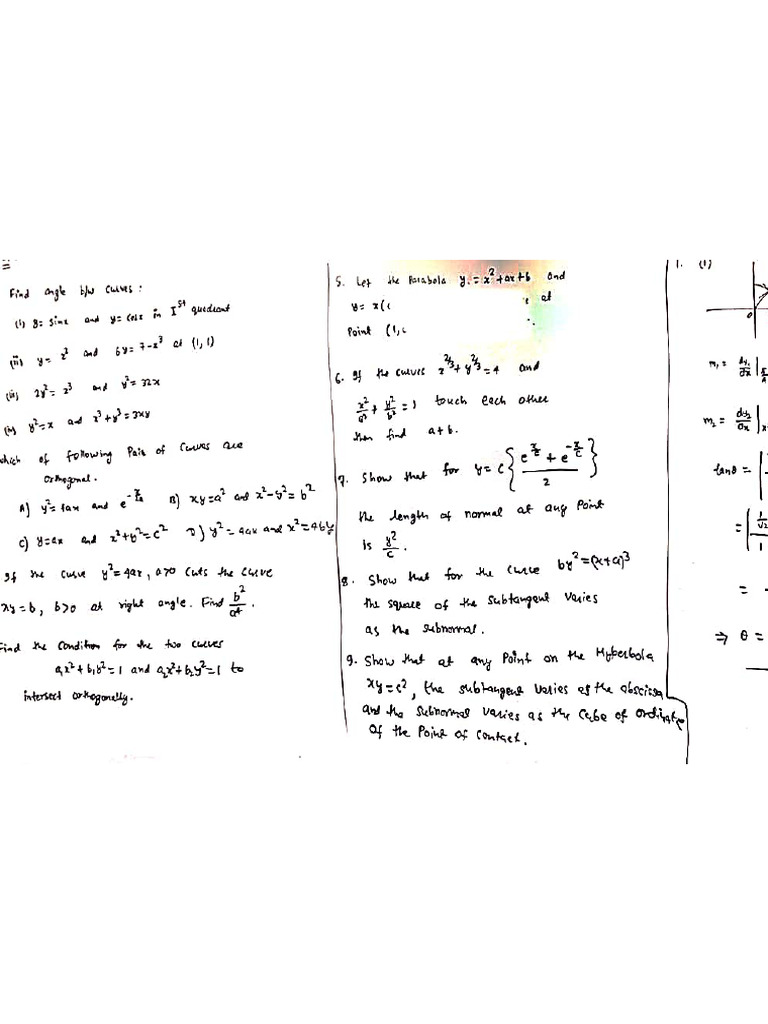 Find angle b/w curves :
(i) y = sinx and y = cosx in Iˢᵗ quadrant
(ii) y = x² and 6y = 7-x³ at (1, 1)
(iii) 2y² = x³ and y² = 32x
(iv) y² = x and x³ + y³ = 3xy
which of following Pair of Curves are
orthogonal.
A) y² = 4ax and e^(-x/2a) B) xy = a² and x² - y² = b²
C) y = ax and x² + y² = c² D) y² = 4ax and x² = 4by
If the curve y² = 4ax, a>0 cuts the curve
xy = b, b>0 at right angle. Find b²/a⁴.
Find the Condition for the two curves
a₁x² + b₁y² = 1 and a₂x² + b₂y² = 1 to
intersect orthogonally.
5. Let the Parabola y = x² + ax + b and
y = x(c at
Point (1,
6. If the curves x^(2/3) + y^(2/3) = 4 and
x²/a² + y²/b² = 1 touch each other
then find a+b.
7. Show that for y = c{(e^(x/c) + e^(-x/c))/2}
the length of normal at any Point
is y²/c.
8. Show that for the curve by² = (x+a)³
the square of the subtangent varies
as the subnormal.
9. Show that at any Point on the Hyberbola
xy = c², the subtangent varies as the abscissa
and the subnormal varies as the cube of ordinate
of the Point of contact.
1. (1)
0
m₁ = dy₁/dx
m₂ = dy₂/dx
tanθ =
=
=
⇒ θ =